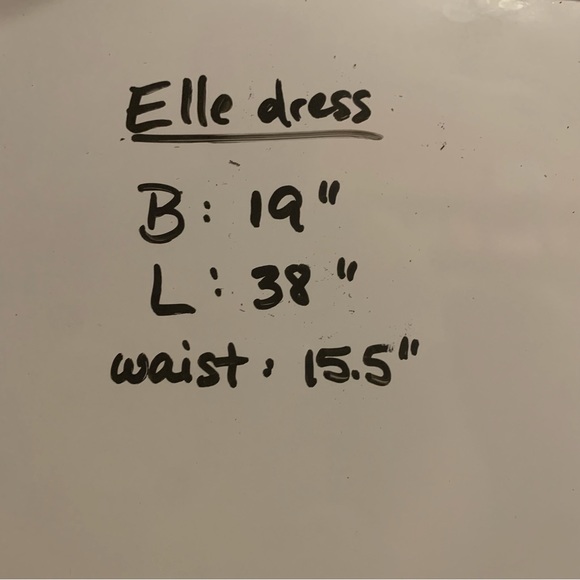 Elle dress
B: 19"
L: 38"
waist: 15.5"